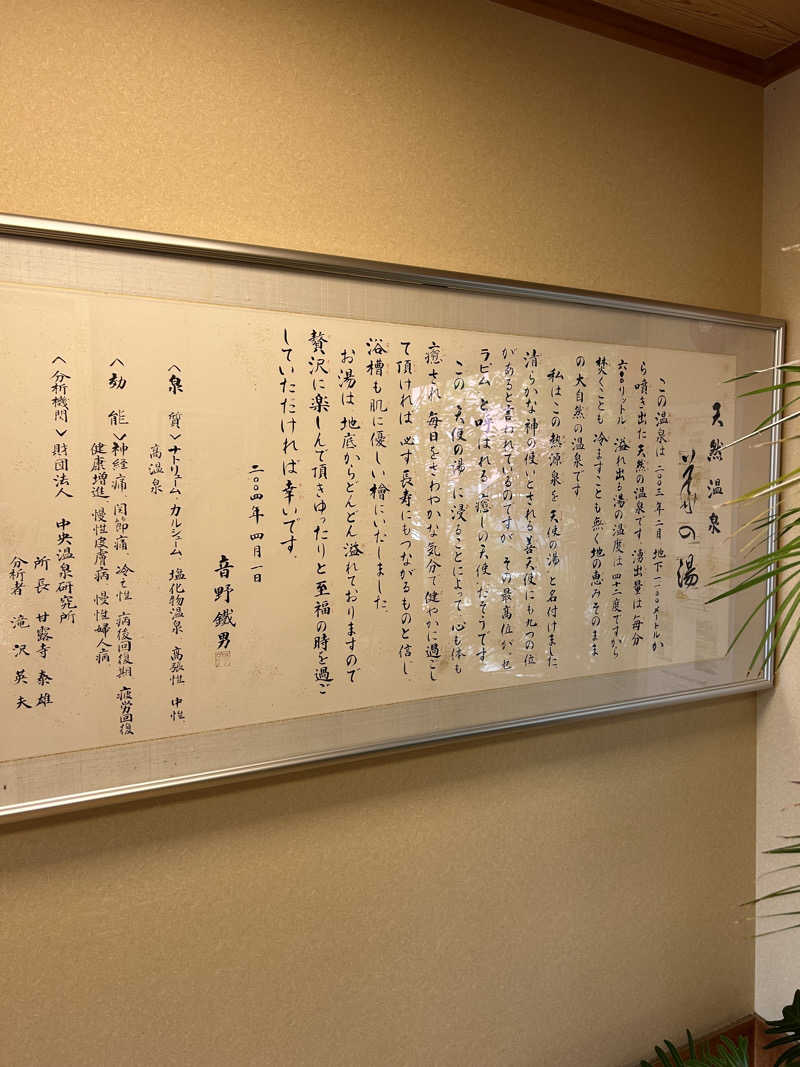 天然温泉
の湯
この温泉は 二〇〇三年二月 地下一二〇〇メートルか
ら噴き出た天然の温泉です 湧出量は毎分
六〇〇リットル 溢れ出る湯の温度は四十二度ですから
焚くことも 冷ますことも無く地の恵みそのまま
の大自然の温泉です
私はこの熱源泉を天使の湯と名付けました
清らかな神の使いとされる善天使にも九つの位
があると言われているのですが その最高位が、セ
ラピム と呼ばれる 癒しの天使、だそうです
この 天使の湯 に浸ることによって 心も体も
癒され 毎日をさわやかな気分で健やかに過ごし
て頂ければ必ず長寿にもつながるものと信じ
浴槽も肌に優しい檜にいたしました
お湯は 地底からどんどん溢れておりますので
贅沢に楽しんで頂きゆったりと至福の時を過ご
していただければ幸いです。
二〇〇四年 四月一日
音野鐵男
〈泉 質〉ナトリューム・カルシューム 塩化物温泉 高張性 中性
高温泉
〈効 能〉神経痛、関節痛、冷え性 病後回復期 疲労回復
健康増進、慢性皮膚病 慢性婦人病
〈分析機関〉財団法人 中央温泉研究所
所長 甘露寺 泰雄
分析者 滝沢英夫